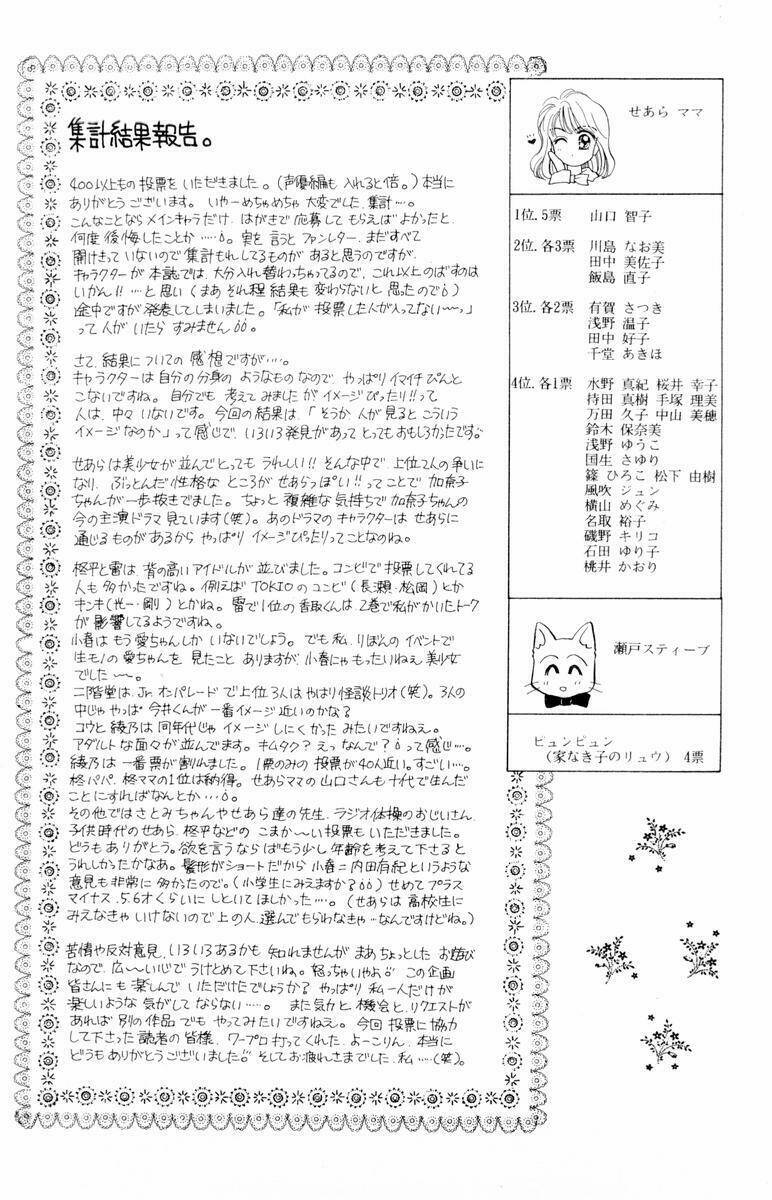 集計結果報告。
400以上もの投票をいただきました。(声優編も入れると倍。)本当に
ありがとうございます。いやーめちゃめちゃ大変でした、集計…。
こんなことならメインキャラだけ、はがきで応募してもらえばよかったと、
何度後悔したことか……。実を言うとファンレター、まだすべて
開けきっていないので集計もれしてるものがあると思うのですが、
キャラクターが本誌では、大分入れ替わっちゃてるので、これ以上のばすのは
いかん!!…と思い(まあそれ程結果も変わらないと思ったので)
途中ですが発表してしまいました。「私が投票した人が入ってない〜っ」
って人がいたらすみません。
さて、結果についての感想ですが…。
キャラクターは自分の分身のようなものなので、やっぱりイマイチぴんと
こないですね。自分でも考えてみましたがイメージぴったり!!って
人は、中々いないです。今回の結果は、「そうか人が見るとこういう
イメージなのか」って感じで、いろいろ発見があってとってもおもしろかったです。
せあらは美少女が並んでとってもうれしい!!そんな中で、上位2人の争いに
なり、ぶっとんだ性格なところがせあらっぽい!!ってことで加奈子
ちゃんが一歩抜きでました。ちょっと複雑な気持ちで加奈子ちゃんの
今の主演ドラマ見ています(笑)。あのドラマのキャラクターはせあらに
通じるものがあるからやっぱりイメージぴったりってことなのね。
柊平と雷は背の高いアイドルが並びました。コンビで投票してくれてる
人も多かったですね。例えばTOKIOのコンビ(長瀬・松岡)とか
キンキ(光一・剛)とかね。雷で1位の香取くんは2巻で私がかいたトーク
が影響してるようですね。
小春はもう愛ちゃんしかいないでしょう。でも私、りぼんのイベントで
生モノの愛ちゃんを見たことありますが、小春にゃもったいねえ美少女
でした〜。
二階堂は、Jr.オンパレードで上位3人はやはり怪談トリオ(笑)。3人の
中じゃやっぱ今井くんが一番イメージ近いのかな?
コウと綾乃は同年代じゃイメージしにくかったみたいですねえ。
アダルトな面々が並んでます。キムタク?えっなんで?って感じ…。
綾乃は一番票が割れました。1票のみの投票が40人近い。すごい…。
柊パパ、柊ママの1位は納得。せあらママの山口さんも十代で生んだ
ことにすればなんとか…。
その他ではさとみちゃんやせあら達の先生、ラジオ体操のおじいさん、
子供時代のせあら、柊平などのこまか〜い投票もいただきました。
どうもありがとう。欲を言うならばもう少し年齢を考えて下さると
うれしかったかなあ。髪形がショートだから小春=内田有紀というような
意見も非常に多かったので。(小学生にみえますか?)せめてプラス
マイナス5.6才くらいにしといてほしかった…。(せあらは高校生に
みえなきゃいけないので上の人、選んでもらわなきゃ…なんですけどね。)
苦情や反対意見、いろいろあるかも知れませんが、まあちょっとしたお遊び
なので、広〜い心でうけとめて下さいね。怒っちゃいやよ この企画
皆さんにも楽しんでいただけたでしょうか?やっぱり私一人だけが
楽しいような気がしてならない……。また気力と機会と、リクエストが
あれば別の作品でもやってみたいですねえ。今回投票に協力
して下さった読者の皆様、ワープロ打ってくれた、よーこりん、本当に
どうもありがとうございました そしてお疲れさまでした、私……(笑)。
せあら ママ
1位.5票 山口 智子
2位.各3票 川島 なお美
田中 美佐子
飯島 直子
3位.各2票 有賀 さつき
浅野 温子
田中 好子
千堂 あきほ
4位.各1票 水野 真紀 桜井 幸子
持田 真樹 手塚 理美
万田 久子 中山 美穂
鈴木 保奈美
浅野 ゆうこ
国生 さゆり
篠 ひろこ 松下 由樹
風吹 ジュン
横山 めぐみ
名取 裕子
磯野 キリコ
石田 ゆり子
桃井 かおり
瀬戸スティーブ
ピュンピュン
(家なき子のリュウ) 4票